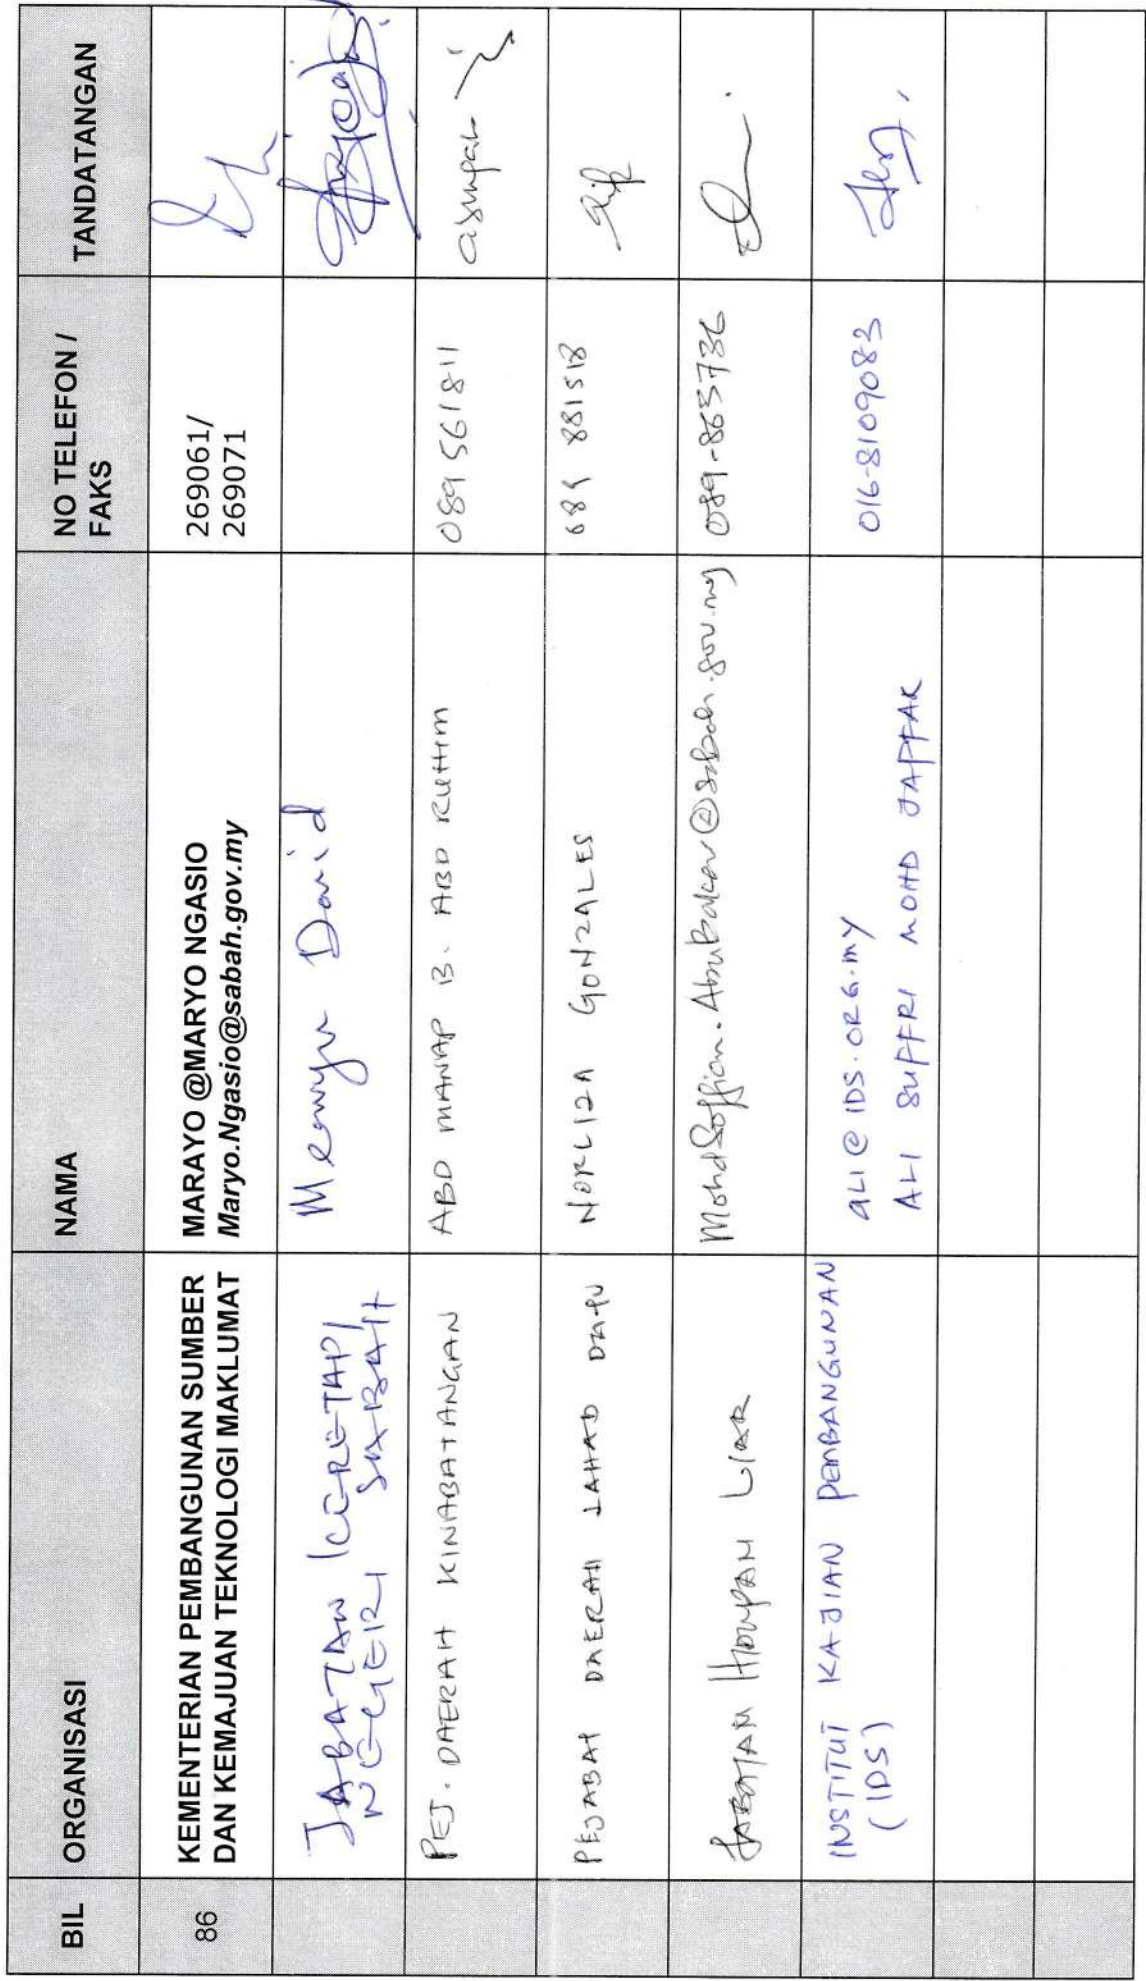 BIL ORGANISASI NAMA NO TELEFON / FAKS TANDATANGAN
86 KEMENTERIAN PEMBANGUNAN SUMBER DAN KEMAJUAN TEKNOLOGI MAKLUMAT MARAYO @MARYO NGASIO Maryo.Ngasio@sabah.gov.my 269061/ 269071
JABATAN KERETAPI NEGERI SABAH David
PEJ. DAERAH KINABATANGAN ABD MANAP B. ABD 089 561811
PEJABAT DAERAH LAHAD DATU NORLIZA GONZALES 089 881518
JABATAN HIDUPAN LIAR MohdSoffian.AbuBakar@sabah.gov.my 089-863736
INSTITUT KAJIAN PEMBANGUNAN (IDS) ALI@IDS.ORG.MY ALI SUFFRI MOHD JAFFAR 016-8109083